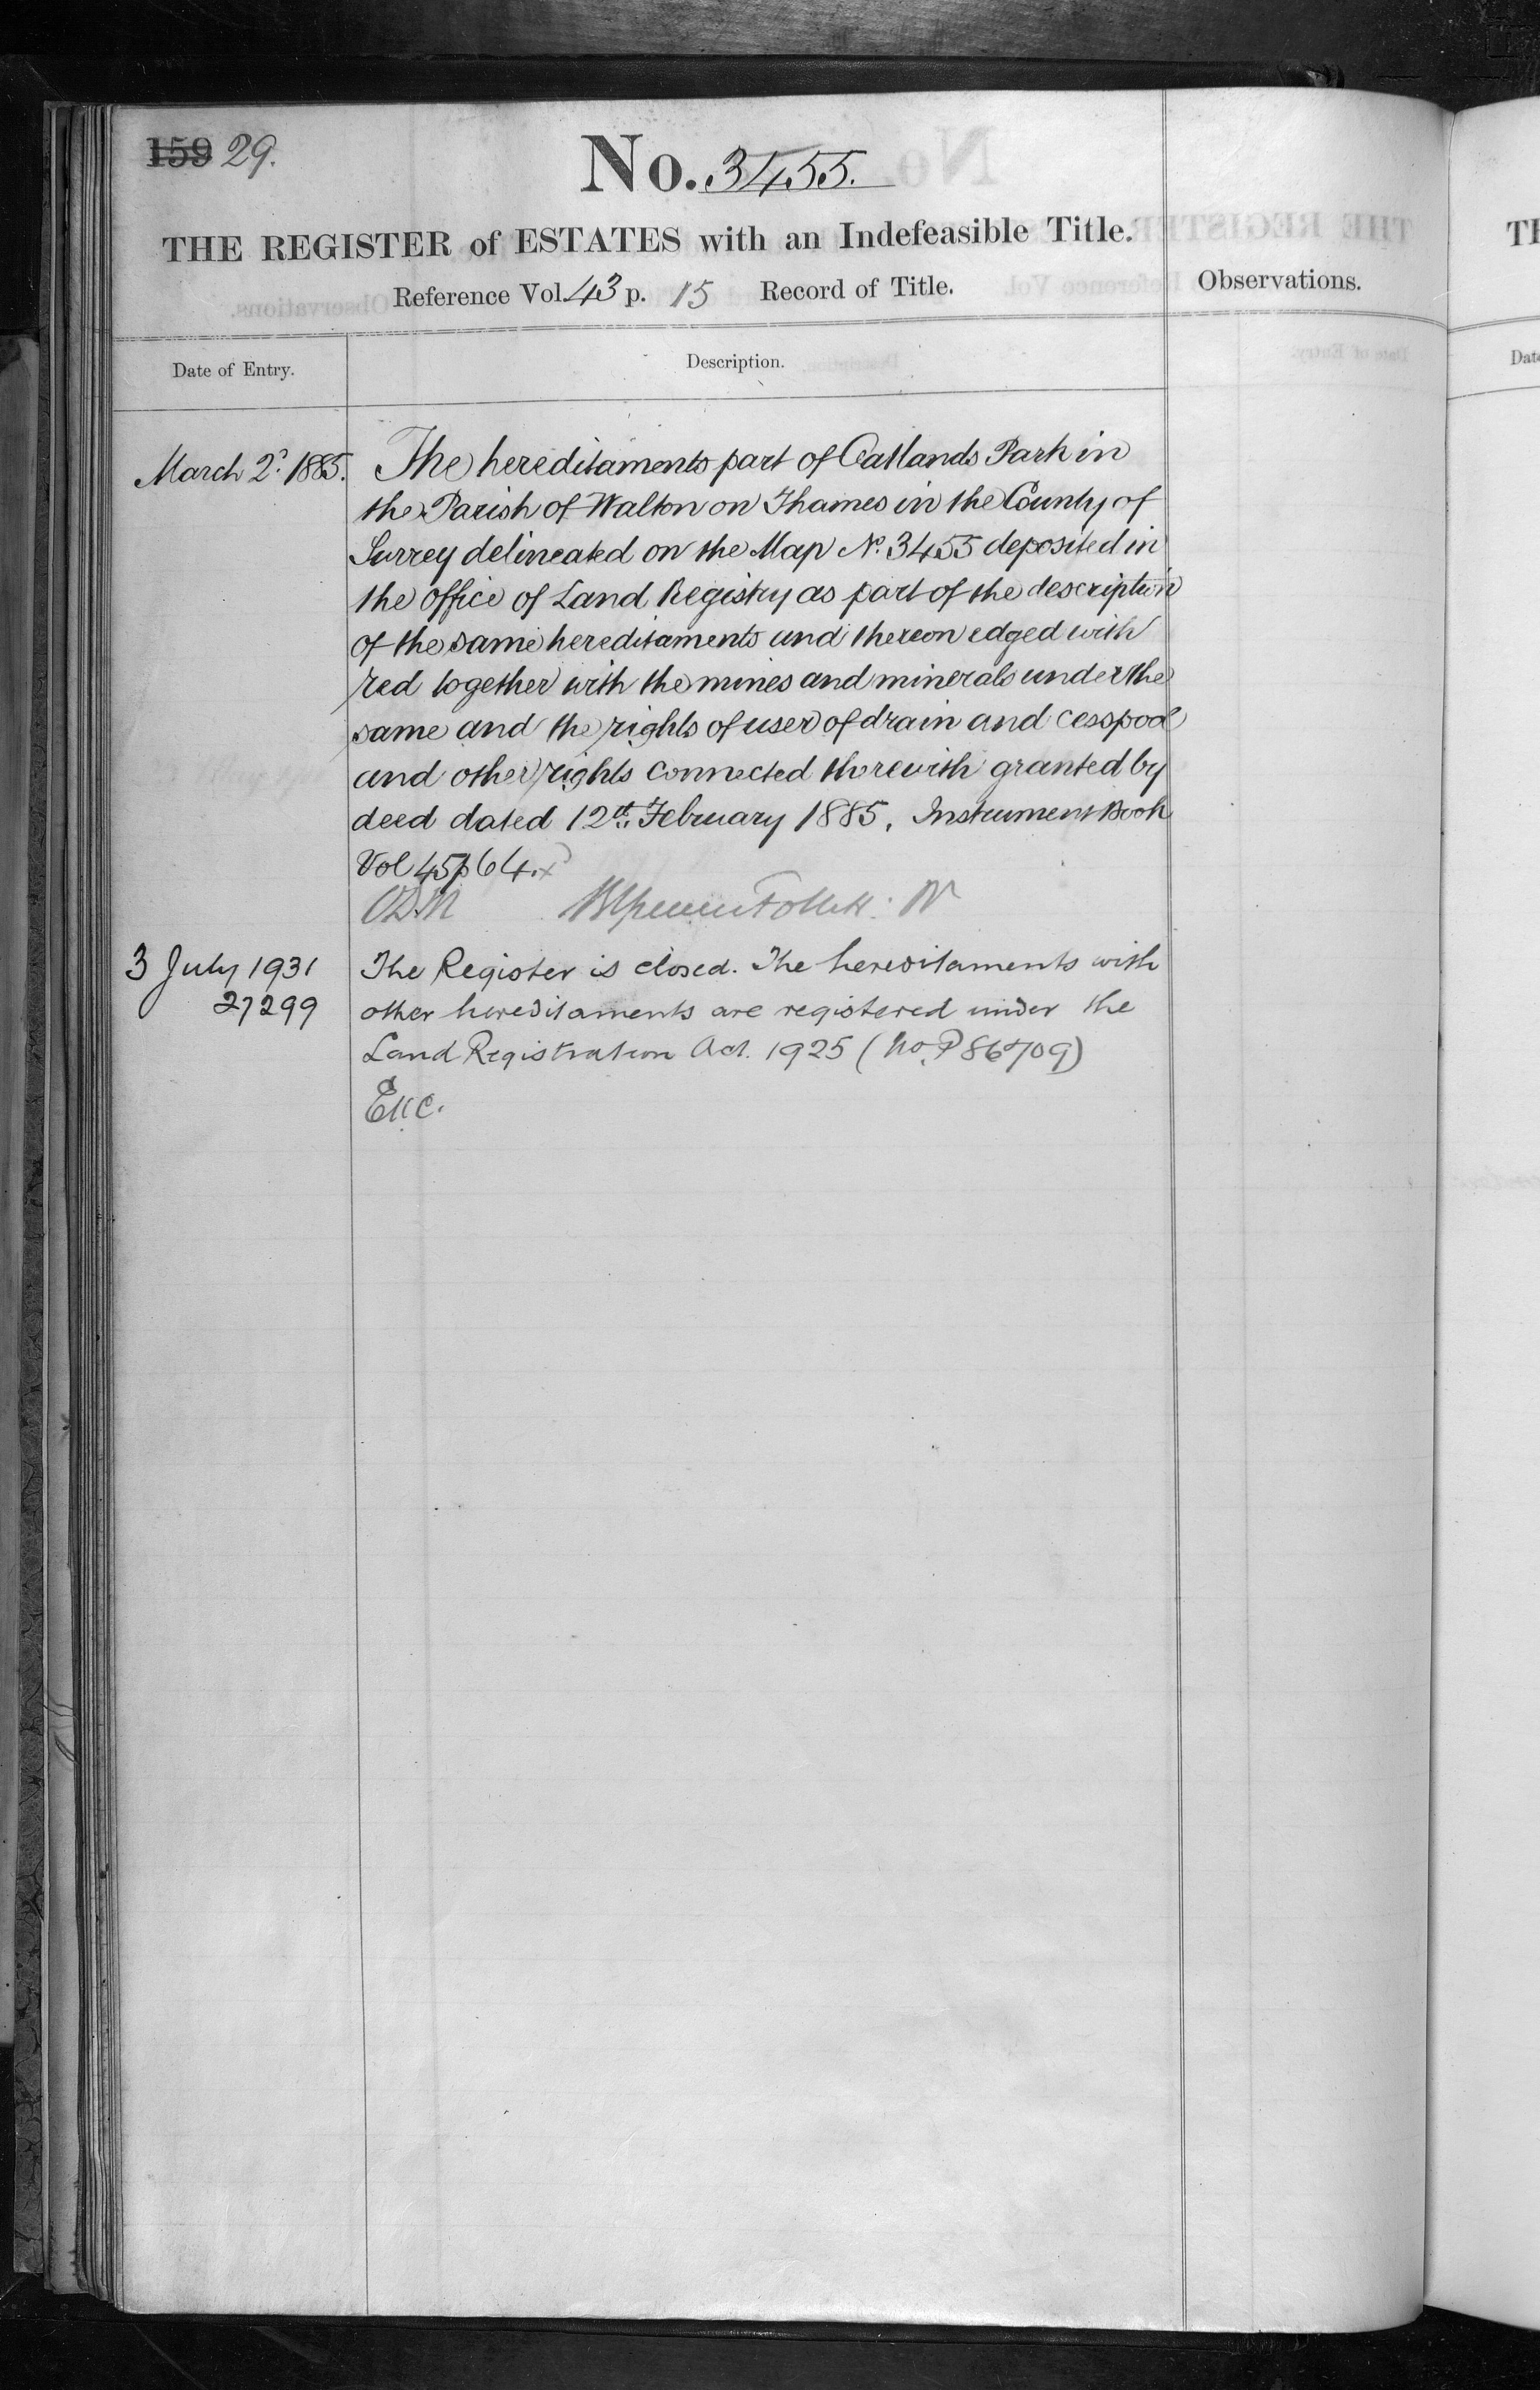 159 29.
No. 3455.
THE REGISTER of ESTATES with an Indefeasible Title.
Reference Vol. 43 p. 15 Record of Title.
Observations.
Date of Entry.
Description.
March 2d. 1885.
The hereditaments part of Oatlands Park in
the Parish of Walton on Thames in the County of
Surrey delineated on the Map No. 3455 deposited in
the office of Land Registry as part of the description
of the same hereditaments and thereon edged with
red together with the mines and minerals under the
same and the rights of user of drain and cesspool
and other rights connected therewith granted by
deed dated 12th. February 1885. Instrument Book
Vol 45 p 64.
3 July 1931
27299
The Register is closed. The hereditaments with
other hereditaments are registered under the
Land Registration Act. 1925 (No. P 86709)